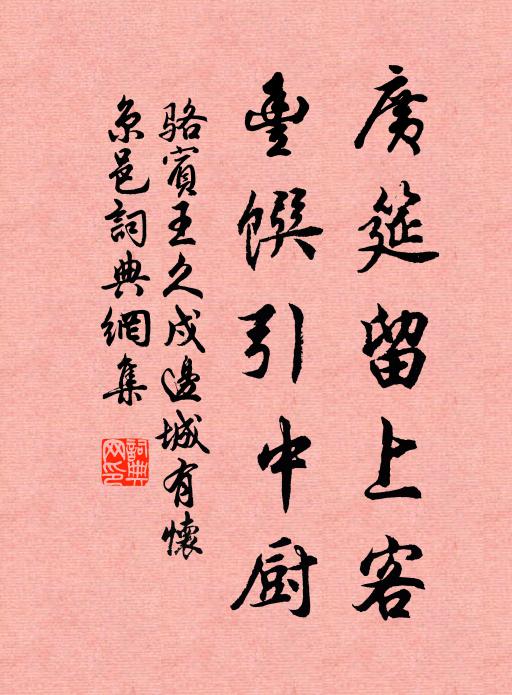 廣筵留上客
豊饌引中厨
骆賓王久戍邊城有懷
京邑詞典網集
詞典
网印